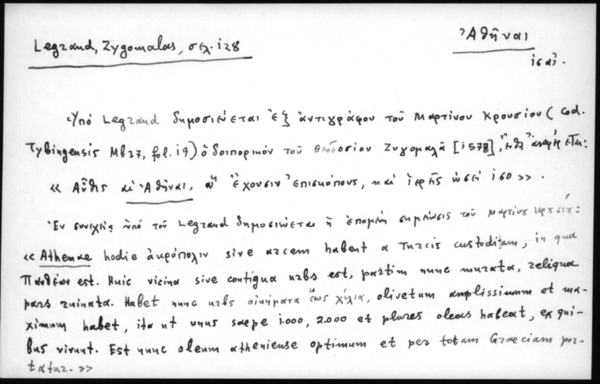 Legrand, Zygomalas, σελ. 128
Ἀθῆναι
ις αἰ.
Ὑπό Legrand δημοσιεύεται ἐξ ἀντιγράφου τοῦ Μαρτίνου Κρουσίου (cod.
Tybingensis Mb 37, fol. 19) ὁδοιπορικόν τοῦ Θεοδοσίου Ζυγομαλᾶ [1578], ἔνθα ἀναφέρεται:
« Αὖθις αἱ Ἀθῆναι, αἵ ἔχουσιν ἐπισκόπους, καί ἱερεῖς ὡσεί 160 ».
Ἐν συνεχείᾳ ὑπό τοῦ Legrand δημοσιεύεται ἡ ἑπομένη σημείωσις τοῦ Μαρτίνου Κρουσίου:
« Athenae hodie ἀκρόπολιν sive arcem habent a Turcis custoditam, in qua
Πανθέον est. Huic vicina sive contigua urbs est, partim nunc murata, reliqua
pars ruinata. Habet nunc urbs οἰκήματα ἕως χίλια, olivetum amplissimum et ma-
ximum habet, ita ut unus saepe 1.000, 2.000 et plures oleas habeat, ex qui-
bus vivunt. Est nunc oleum atheniense optimum et per totam Graeciam por-
tatur. »